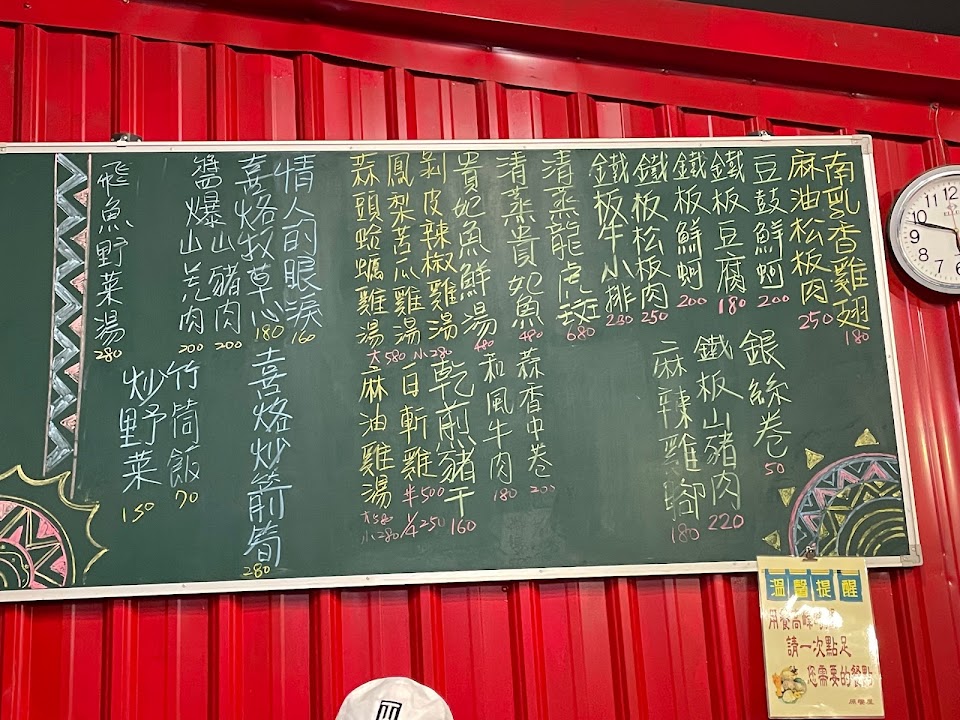 南乳香雞翅 180
麻油松板肉 250
豆鼓鮮蚵 200
鐵板豆腐 180
鐵板鮮蚵 200
鐵板松板肉 250
鐵板牛小排 230
清蒸龍虎斑 680
清蒸貴妃魚 480
貴妃魚鮮湯 480
剝皮辣椒雞湯 小280
鳳梨苦瓜雞湯 大580
蒜頭蛤蠣雞湯
情人的眼淚 160
喜烙牧草心 180
醬爆山豬肉 200
山羌肉 200
飛魚野菜湯 280
銀絲卷 50
鐵板山豬肉 220
麻辣雞腳 180
蒜香中卷 200
和風牛肉 180
乾煎豬干 160
白斬雞 半500 1/4 250
麻油雞湯 大580 小280
喜烙炒箭筍 280
竹筒飯 70
炒野菜 150
12
11
10
9
8
7
6
溫馨提醒
請一次點足
您需要的餐點